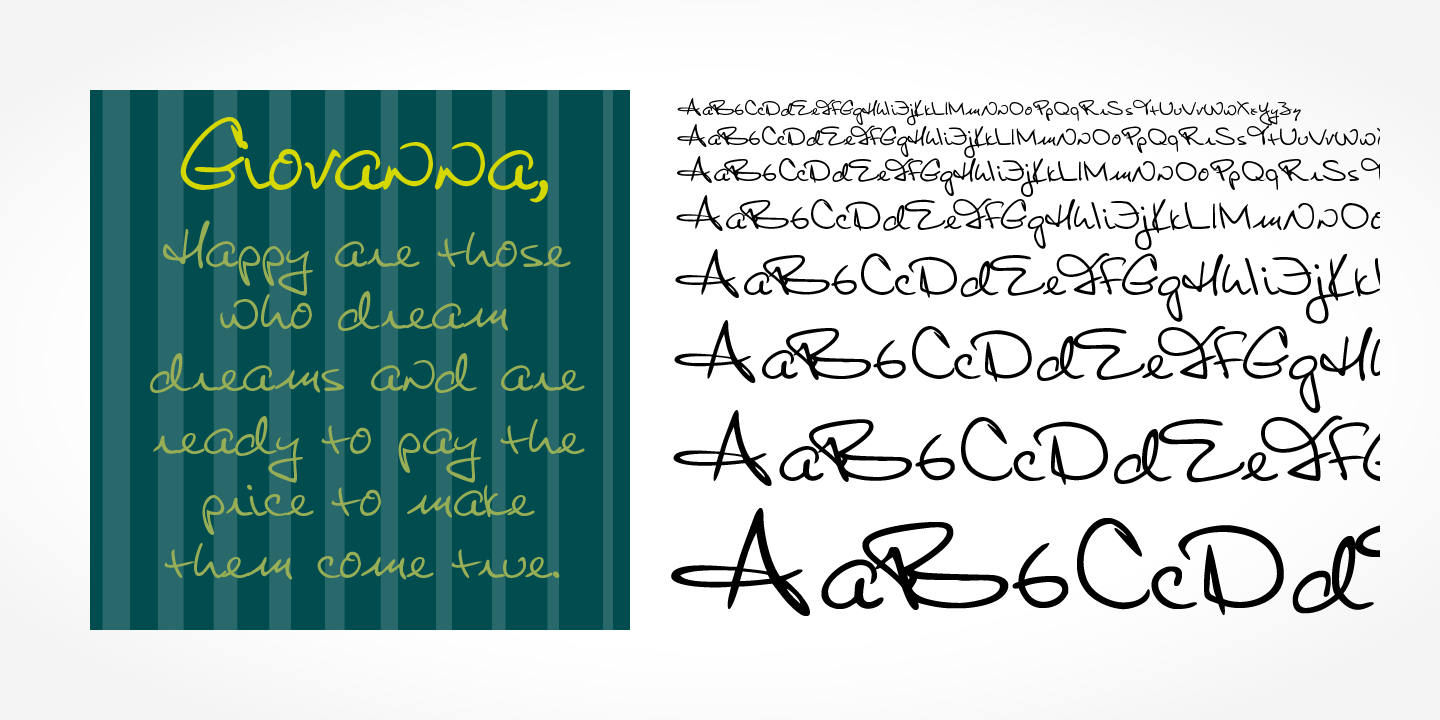 Giovanna,
Happy are those
who dream
dreams and are
ready to pay the
price to make
them come true.
AaBbCcDdEeFfGgHhIiJjKkLlMmNnOoPpQqRrSsTtUuVvWwXxYyZz
AaBbCcDdEeFfGgHhIiJjKkLlMmNnOoPpQqRrSsTtUuVvWw
AaBbCcDdEeFfGgHhIiJjKkLlMmNnOoPpQqRrSsT
AaBbCcDdEeFfGgHhIiJjKkLlMmNnOo
AaBbCcDdEeFfGgHhIiJjKk
AaBbCcDdEeFfGgHh
AaBbCcDdEeFfG
AaBbCcDd